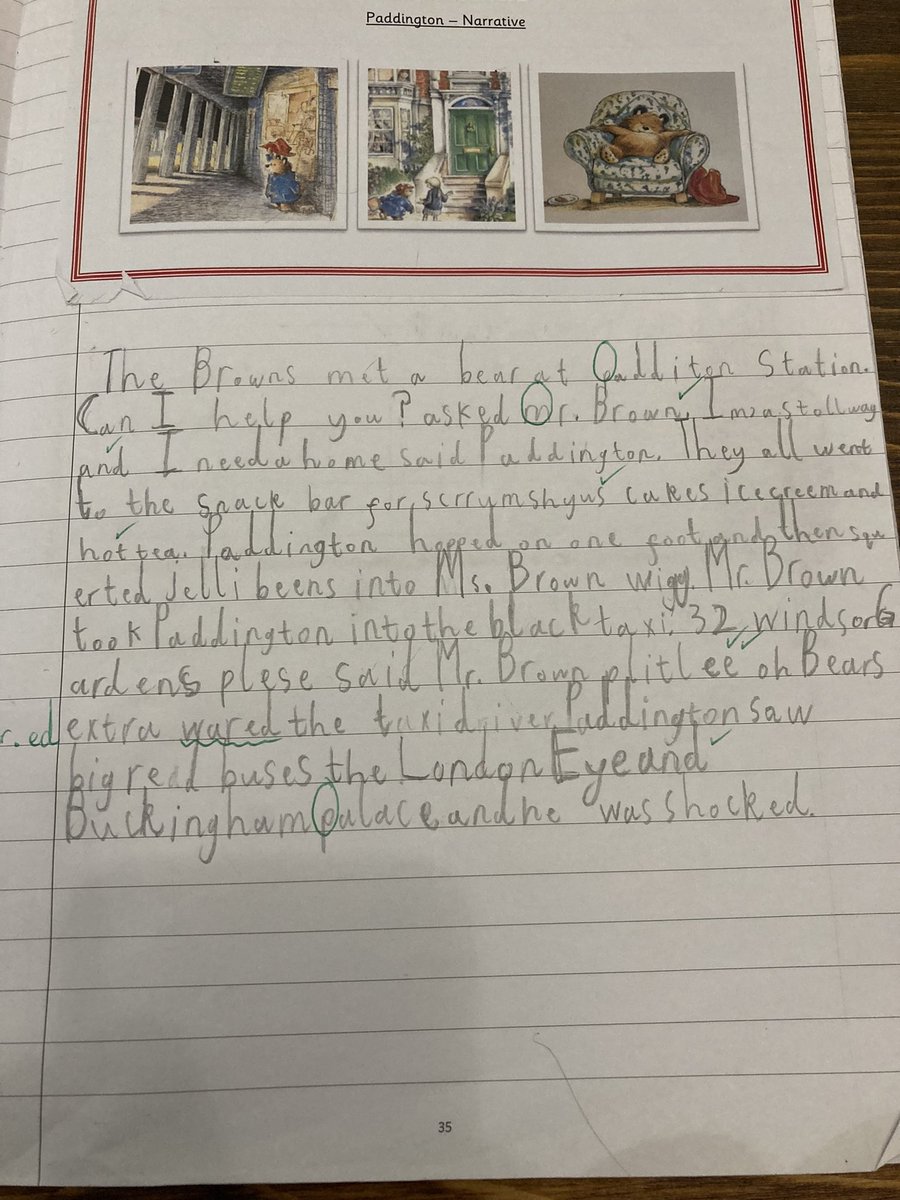 Paddington – Narrative
The Browns met a bear at Padditon Station.
Can I help you? asked Mr. Brown, Im a stollway
and I need a home said Paddington. They all went
to the snack bar for, scrrymshyus cakes icegreem and
hot tea. Paddington hopped on one foot and then squ
erted Jelli beens into Ms. Brown wigy. Mr. Brown
took Paddington into the black taxi. 32 windsor G
ardens plese said Mr. Brown plitlee oh Bears
r. ed extra wared the taxi driver Paddington saw
big read buses the London Eye and
Buckingham palace and he was shocked.
35